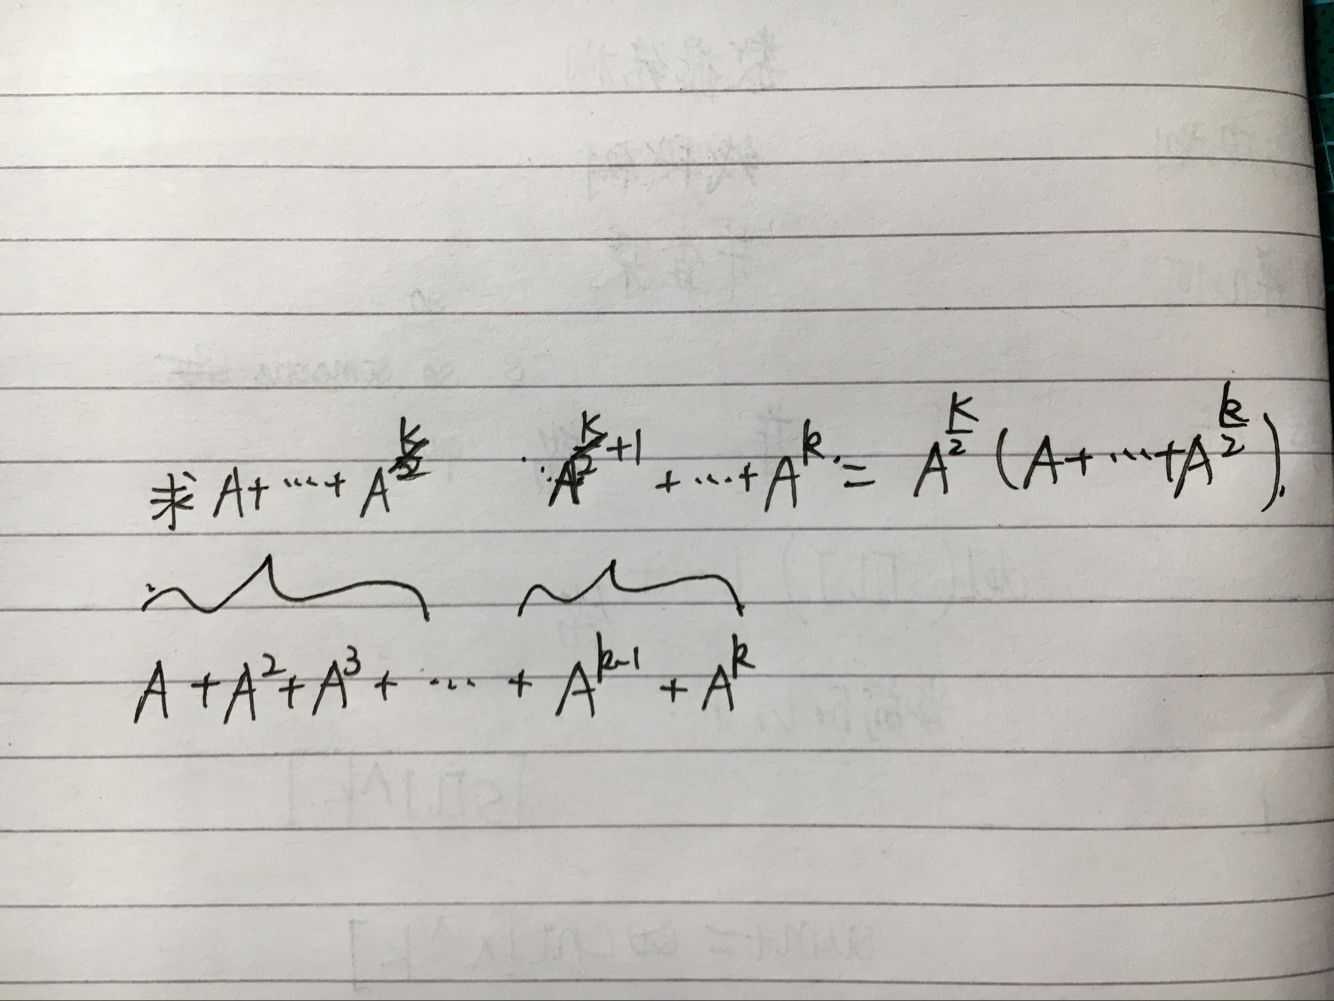 求 A+…+A^{k/2} A^{k/2+1} +…+A^k = A^{k/2} (A+…+A^{k/2}).
A + A^2 + A^3 + … + A^{k-1} + A^k